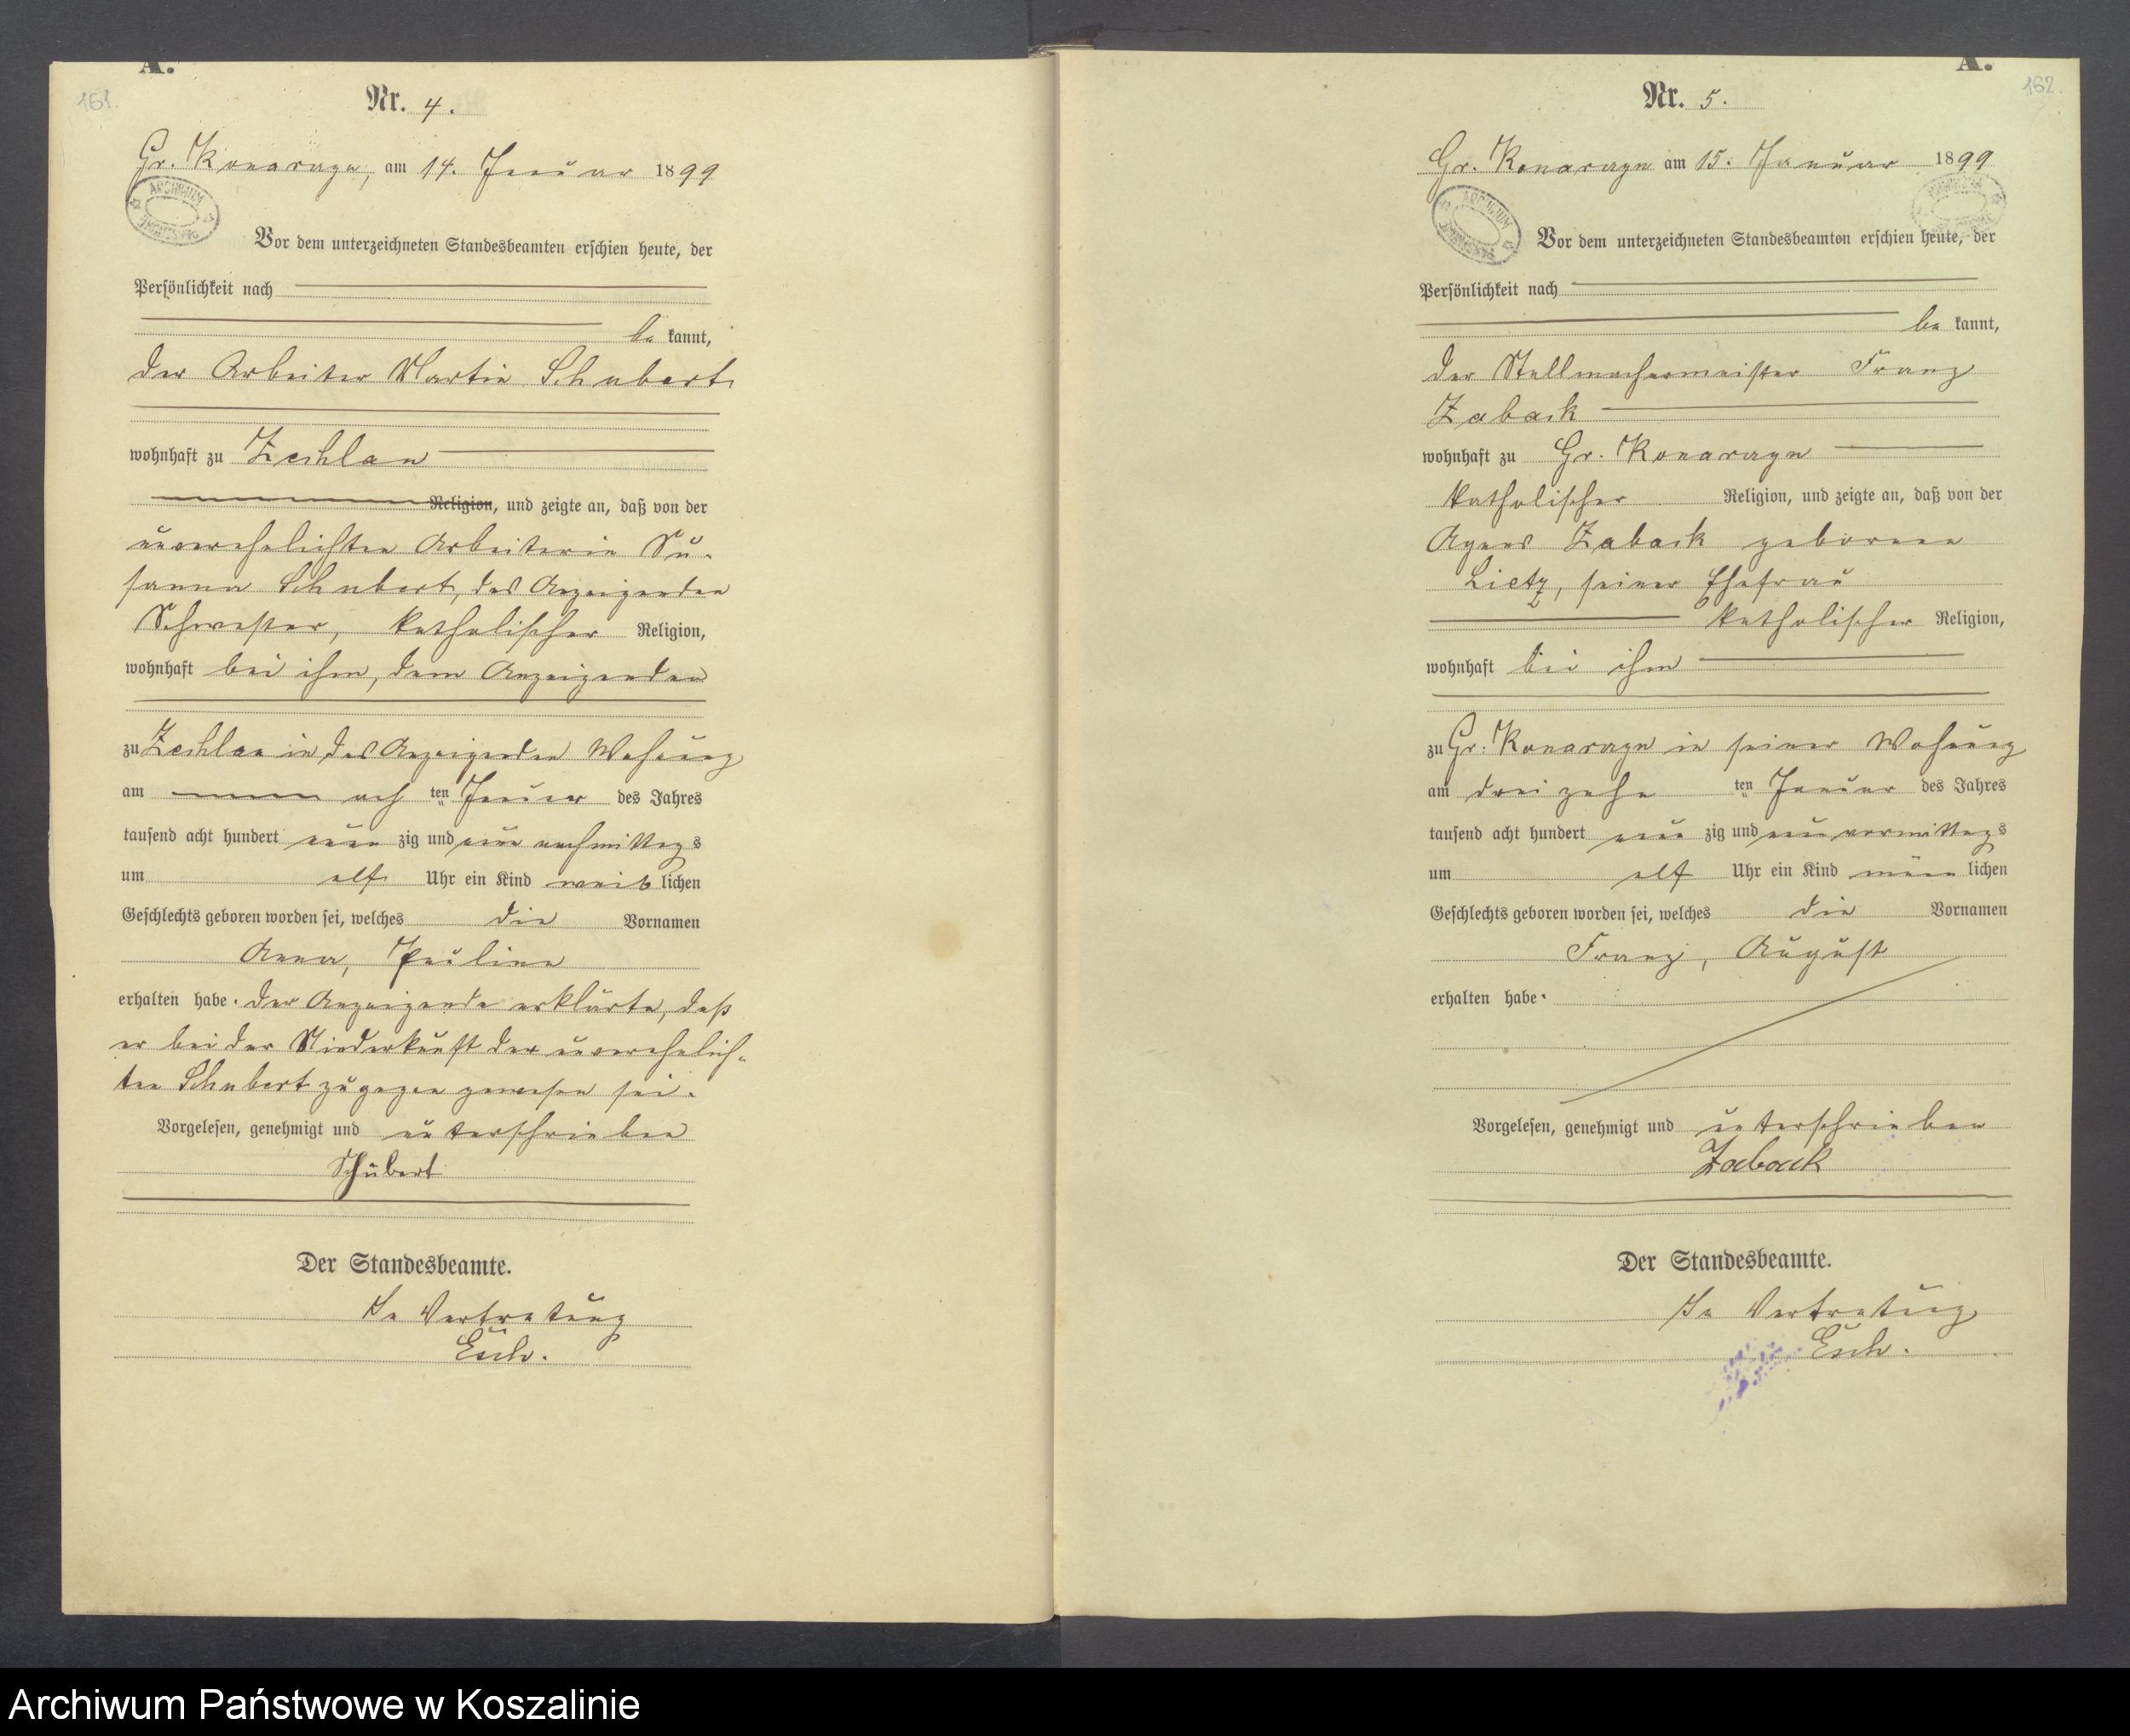 161.
A.
Nr. 4.
Gr. Konarzyn, am 14. Januar 1899
ARCHIWUM
Vor dem unterzeichneten Standesbeamten erschien heute, der
Persönlichkeit nach
be kannt,
der Arbeiter Martin Schubert
wohnhaft zu Zechlau
Religion, und zeigte an, daß von der
unverehelichten Arbeiterin Su-
sanna Schubert, des Anzeigenden
Schwester, katholischer Religion,
wohnhaft bei ihm, dem Anzeigenden
zu Zechlau in des Anzeigenden Wohnung
am ach ten Januar des Jahres
tausend acht hundert neun zig und neun nachmittags
um elf Uhr ein Kind weib lichen
Geschlechts geboren worden sei, welches die Vornamen
Anna, Pauline
erhalten habe. Der Anzeigende erklärte, daß
er bei der Niederkunft der unverehelich-
ten Schubert zugegen gewesen sei.
Vorgelesen, genehmigt und unterschrieben
Schubert
Der Standesbeamte.
In Vertretung
Esch.
162.
A.
Nr. 5.
Gr. Konarzyn am 15. Januar 1899
ARCHIWUM
Vor dem unterzeichneten Standesbeamten erschien heute, der
Persönlichkeit nach
be kannt,
der Stellmachermeister Franz
Zaback
wohnhaft zu Gr. Konarzyn
katholischer Religion, und zeigte an, daß von der
Agnes Zaback geborenen
Lietz, seiner Ehefrau
katholischer Religion,
wohnhaft bei ihm
zu Gr. Konarzyn in seiner Wohnung
am dreizehn ten Januar des Jahres
tausend acht hundert neun zig und neun vormittags
um elf Uhr ein Kind männ lichen
Geschlechts geboren worden sei, welches die Vornamen
Franz, August
erhalten habe.
Vorgelesen, genehmigt und unterschrieben
Zaback
Der Standesbeamte.
In Vertretung
Esch.
Archiwum Państwowe w Koszalinie